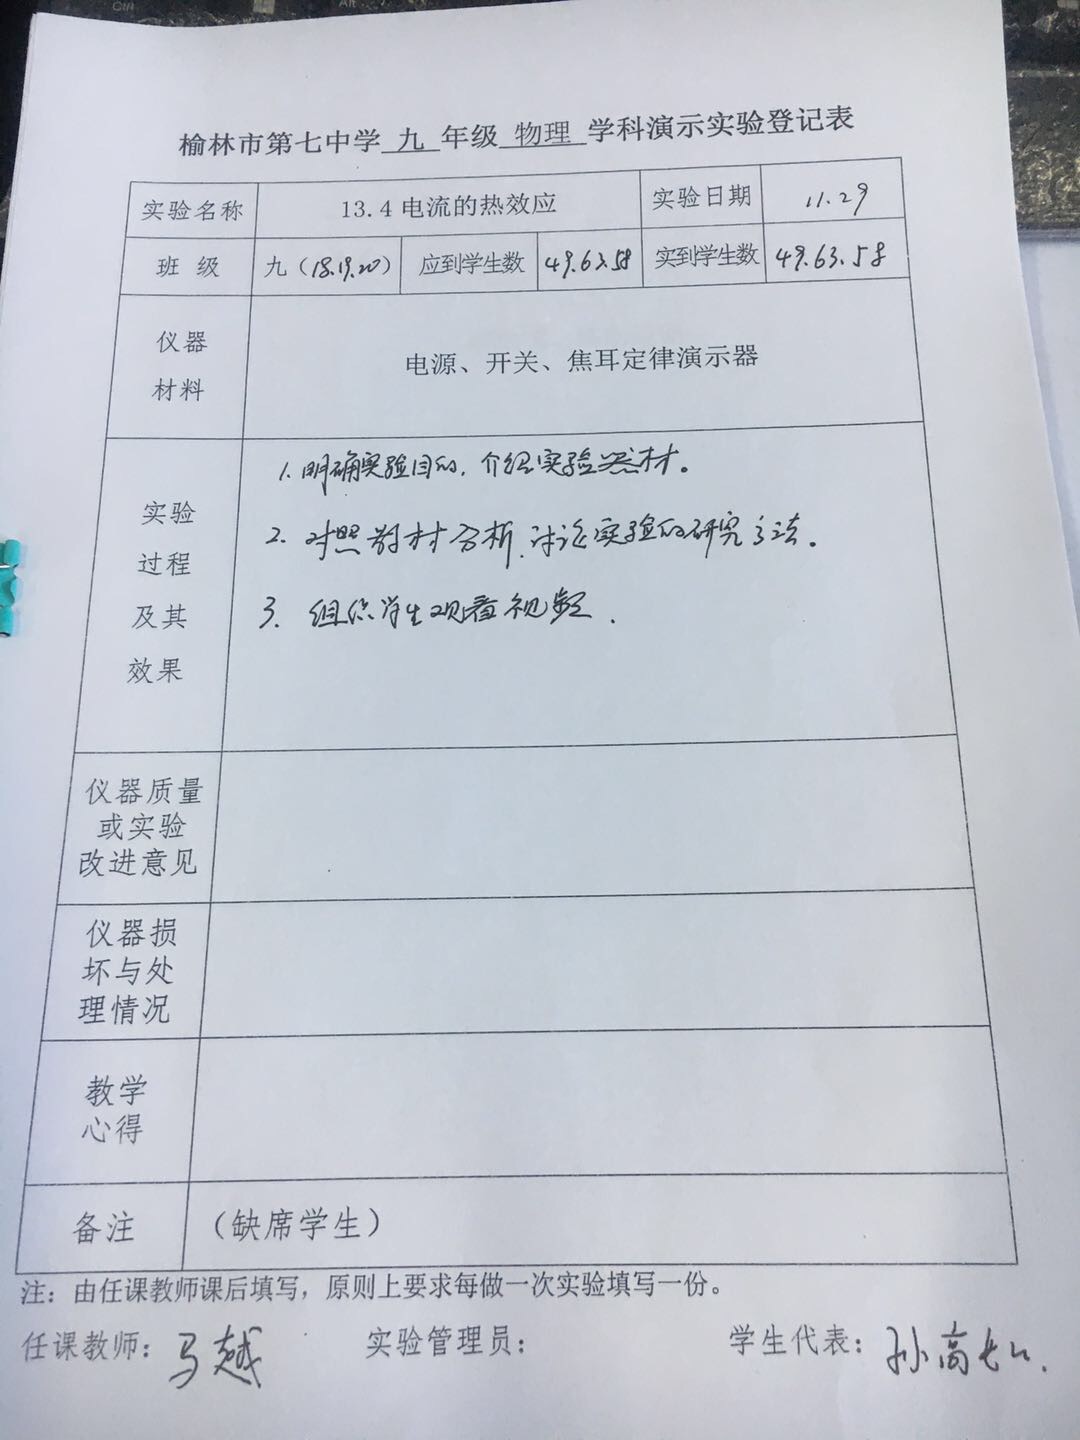 榆林市第七中学 九 年级 物理 学科演示实验登记表
实验名称 13.4电流的热效应 实验日期 11.29
班 级 九（18.19.20） 应到学生数 49.63.58 实到学生数 49.63.58
仪器
材料
电源、开关、焦耳定律演示器
实验
过程
及其
效果
1. 明确实验目的，介绍实验器材。
2. 对照器材分析，讨论实验的研究方法。
3. 组织学生观看视频.
仪器质量
或实验
改进意见
仪器损
坏与处
理情况
教学
心得
备注 （缺席学生）
注：由任课教师课后填写，原则上要求每做一次实验填写一份。
任课教师：马越 实验管理员： 学生代表：孙高